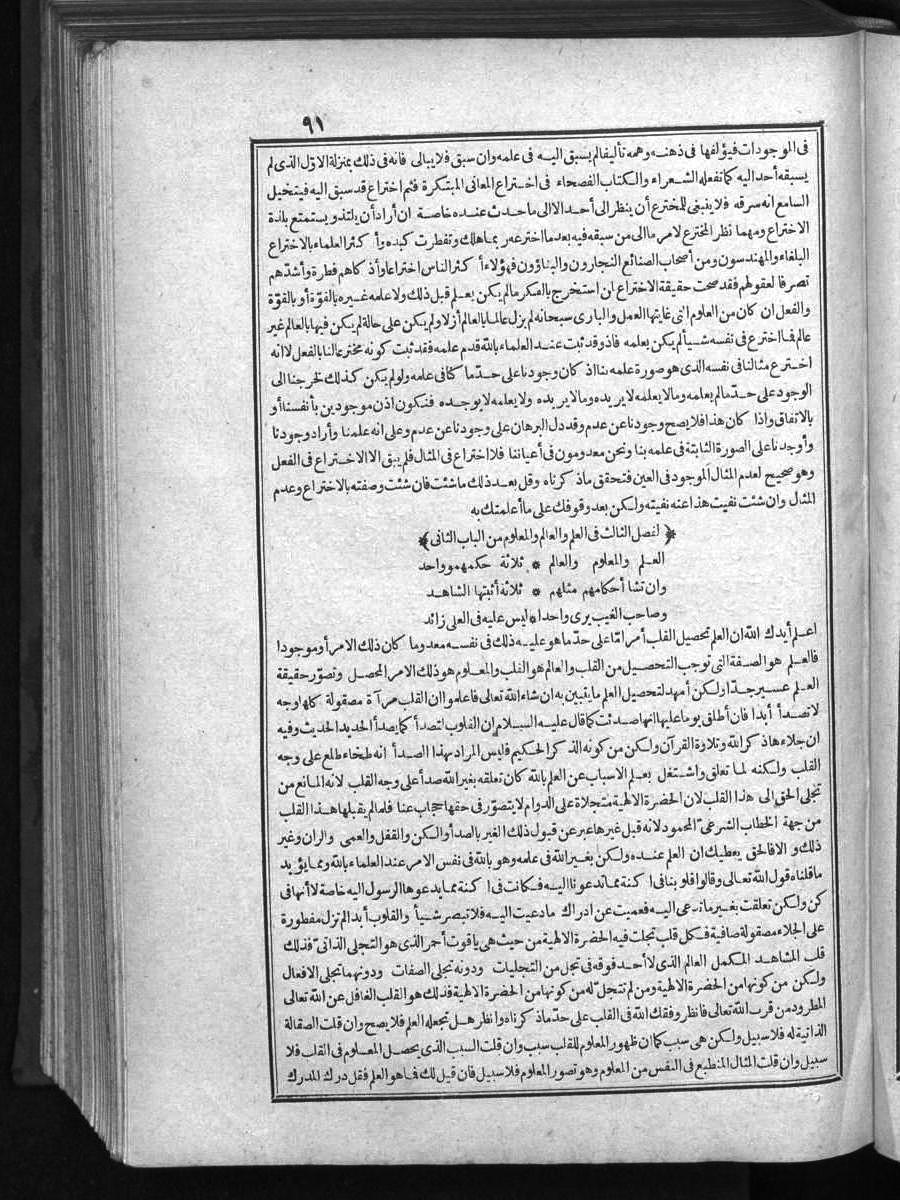 ٩١
فى الموجودات فيؤلفها فى ذهنه ووهمه تأليفالم يسبق اليه فى علمه وان سبق فلا يبالى فانه فى ذلك بمنزلة الاوّل الذى لم
يسبقه أحد اليه كما تفعله الشعراء والكتاب الفصحاء فى اختراع المعانى المبتكرة فثم اختراع قد سبق اليه فيتخيل
السامع انه سرقه فلا ينبغى للمخترع أن ينظر الى أحد الا الى ما حدث عنده خاصة ان أراد أن يلتذ ويستمتع بلذة
الاختراع ومهما نظر المخترع لامر ما الى من سبقه فيه بعد ما اخترعه ربما هلك وتفطرت كبده وأكثر العلماء بالاختراع
البلغاء والمهندسون ومن أصحاب الصنائع النجارون والبناؤون فهؤلاء أكثر الناس اختراعا وأذكاهم فطرة وأشدّهم
تصرفا لعقولهم فقد صحت حقيقة الاختراع لمن استخرج بالفكر مالم يكن يعلم قبل ذلك ولا علمه غيره بالقوّة أو بالقوّة
والفعل ان كان من العلوم التى غايتها العمل والبارى سبحانه لم يزل عالما بالعالم أزلا ولم يكن على حالة لم يكن فيها بالعالم غير
عالم فما اخترع فى نفسه شيأ لم يكن يعلمه فاذ وقد ثبت عند العلماء بالله قدم علمه فقد ثبت كونه مخترعا لنا بالفعل لا انه
اخترع مثالنا فى نفسه الذى هو صورة علمه بنا اذ كان وجودنا على حدّ ما كنا فى علمه ولو لم يكن كذلك لخرجنا الى
الوجود على حدّ مالم يعلمه وما لا يعلمه لا يريده وما لا يريده ولا يعلمه لا يوجده فنكون اذن موجودين بأنفسنا أو
بالاتفاق واذا كان هذا فلا يصح وجودنا عن عدم وقد دل البرهان على وجودنا عن عدم وعلى انه علمنا وأراد وجودنا
وأوجدنا على الصورة الثابتة فى علمه بنا ونحن معدومون فى أعياننا فلا اختراع فى المثال فلم يبق الا الاختراع فى الفعل
وهو صحيح لعدم المثال الموجود فى العين فتحقق ماذكرناه وقل بعد ذلك ماشئت فان شئت وصفته بالاختراع وعدم
المثال وان شئت نفيت هذا عنه نفيته ولكن بعد وقوفك على ما أعلمتك به
﴿لفصل الثالث فى العلم والعالم والمعلوم من الباب الثانى﴾
العلم والمعلوم والعالم * ثلاثة حكمهمو واحد
وان تشا أحكامهم مثلهم * ثلاثة أثبتها الشاهد
وصاحب الغيب يرى واحدا * ليس عليه فى العلى زائد
اعلم أيدك الله ان العلم تحصيل القلب أمر امّا على حدّ ما هو عليه ذلك فى نفسه معدوما كان ذلك الامر أو موجودا
فالعلم هو الصفة التى توجب التحصيل من القلب والعالم هو القلب والمعلوم هو ذلك الامر المحصل وتصوّر حقيقة
العلم عسير جدّا ولكن أمهد لتحصيل العلم مايتبين به ان شاء الله تعالى فاعلموا ان القلب مرآة مصقولة كلها وجه
لا تصدأ أبدا فان أطلق يوما عليها انها صدئت كما قال عليه السلام ان القلوب لتصدأ كما يصدأ الحديد الحديث وفيه
ان جلاءها ذكر الله وتلاوة القرآن ولكن من كونه الذكر الحكيم فليس المراد بهذا الصدأ انه طخاء طلع على وجه
القلب ولكنه لما تعلق واشتغل بعلم الاسباب عن العلم بالله كان تعلقه بغير الله صدأ على وجه القلب لانه المانع من
تجلى الحق الى هذا القلب لان الحضرة الالهية متجلاة على الدوام لا يتصوّر فى حقها حجاب عنا فلما لم يقبلها هذا القلب
من جهة الخطاب الشرعىّ المحمود لانه قبل غيرها عبر عن قبول ذلك الغير بالصدأ والكن والقفل والعمى والران وغير
ذلك والا فالحق يعطيك ان العلم عنده ولكن بغير الله فى علمه وهو بالله فى نفس الامر عند العلماء بالله ومما يؤيد
ماقلناه قول الله تعالى وقالوا قلوبنا فى اكنة مما تدعونا اليه فكانت فى اكنة مما يدعوها الرسول اليه خاصة لا أنها فى
كن ولكن تعلقت بغير ماتدعى اليه فعميت عن ادراك مادعيت اليه فلا تبصر شيأ والقلوب أبدا لم تزل مفطورة
على الجلاء مصقولة صافية فكل قلب تجلت فيه الحضرة الالهية من حيث هى ياقوت أحمر الذى هو التجلى الذاتىّ فذلك
قلب المشاهد المكمل العالم الذى لا أحد فوقه فى تجل من التجليات ودونه تجلى الصفات ودونهما تجلى الافعال
ولكن من كونها من الحضرة الالهية ومن لم تتجل له من كونها من الحضرة الالهية فذلك هو القلب الغافل عن الله تعالى
المطرود من قرب الله تعالى فانظر وفقك الله فى القلب على حدّ ماذكرناه وانظر هل تجعله العلم فلا يصح وان قلت الصقالة
الذاتية له فلا سبيل ولكن هى سبب كما ان ظهور المعلوم للقلب سبب وان قلت السبب الذى يحصل المعلوم فى القلب فلا
سبيل وان قلت المثال المنطبع فى النفس من المعلوم وهو تصور المعلوم فلا سبيل فان قيل لك فما هو العلم فقل درك المدرك